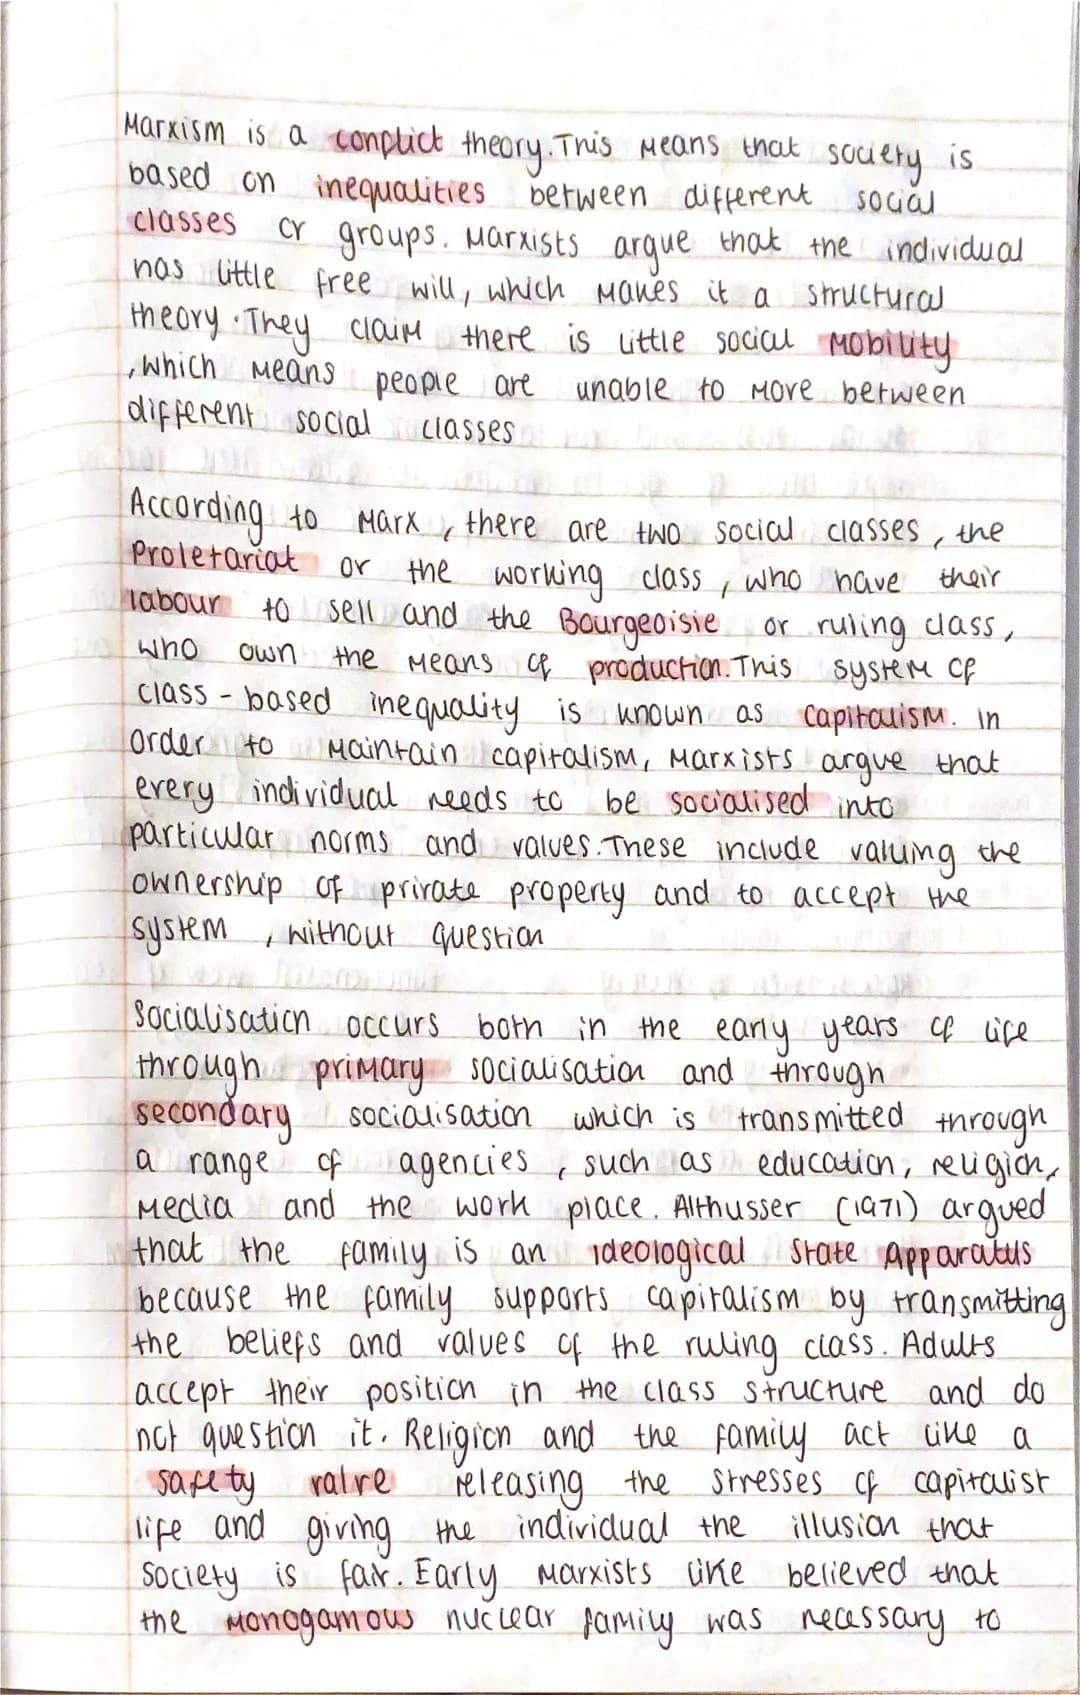 Marxism is a conflict theory. This means that society is
based on inequalities between different social
classes or groups. Marxists argue that the individual
has little free will, which makes it a structural
theory. They claim there is little social mobility
, which means people are unable to move between
different social classes
According to Marx, there are two social classes, the
Proletariat or the working class, who have their
labour to sell and the Bourgeoisie or ruling class,
who own the means of production. This system of
class-based inequality is known as capitalism. In
order to maintain capitalism, Marxists argue that
every individual needs to be socialised into
particular norms and values. These include valuing the
ownership of private property and to accept the
system, without question
Socialisation occurs both in the early years of life
through primary socialisation and through
secondary socialisation which is transmitted through
a range of agencies, such as education, religion,
media and the work place. Althusser (1971) argued
that the family is an ideological State Apparatus
because the family supports capitalism by transmitting
the beliefs and values of the ruling class. Adults
accept their position in the class structure and do
not question it. Religion and the family act like a
safety valve releasing the stresses of capitalist
life and giving the individual the illusion that
society is fair. Early Marxists like believed that
the monogamous nuclear family was necessary to